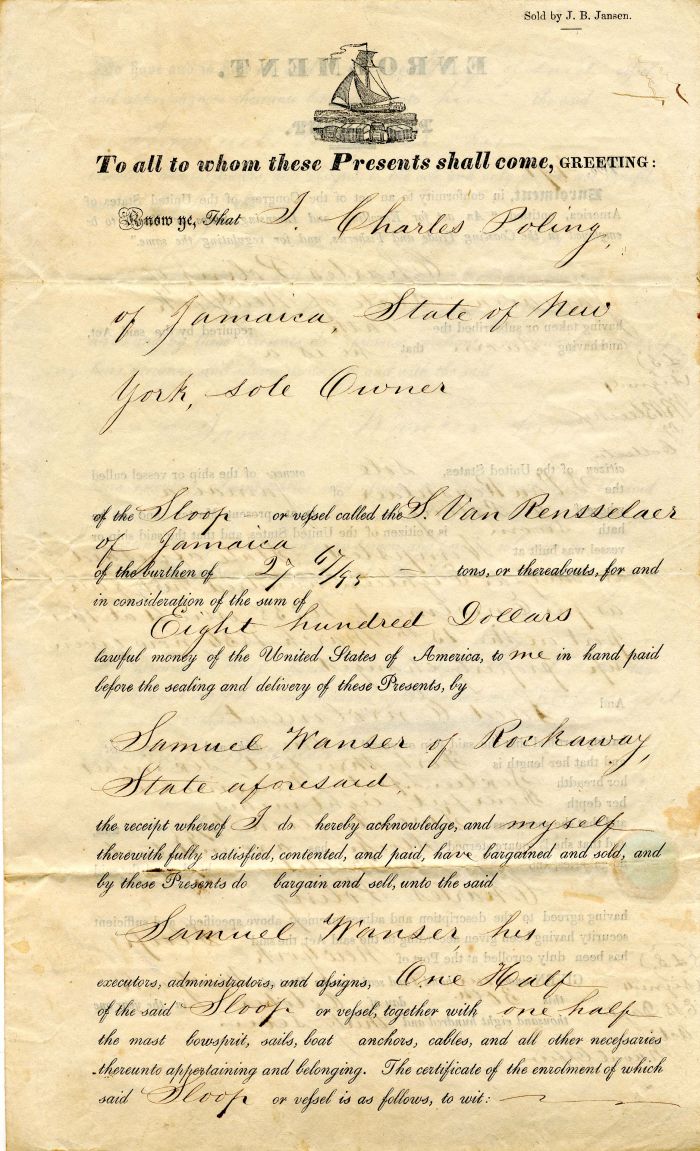 Sold by J. B. Jansen.
To all to whom these Presents shall come, GREETING:
Know ye, That I. Charles Poling,
of Jamaica, State of New
York, sole Owner
of the Sloop or veſsel called the S. Van Rensselaer
of Jamaica
of the burthen of 27 67/95 tons, or thereabouts, for and
in consideration of the sum of
Eight hundred Dollars
lawful money of the United States of America, to me in hand paid
before the sealing and delivery of these Presents, by
Samuel Wanser of Rockaway,
State aforesaid,
the receipt whereof I do hereby acknowledge, and myself
therewith fully satisfied, contented, and paid, have bargained and sold, and
by these Presents do bargain and sell, unto the said
Samuel Wanser, his
executors, administrators, and aſsigns, One Half
of the said Sloop or veſsel, together with one half
the mast bowsprit, sails, boat anchors, cables, and all other neceſsaries
thereunto appertaining and belonging. The certificate of the enrolment of which
said Sloop or veſsel is as follows, to wit: